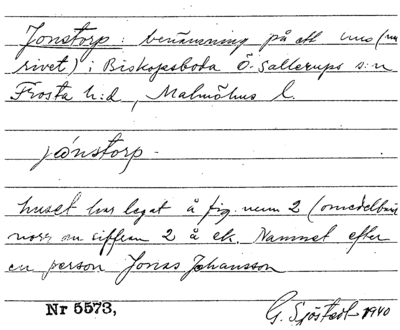 Jonstorp: benämning på ett hus (nu
rivet) i Biskopsboda Ö. Sallerups s:n
Frosta h:d, Malmöhus l.
jónstorp.
huset har legat å fig. num 2 (omedelbart
norr om siffran 2 å ek. Namnet efter
en person Jonas Johansson
Nr 5573,
G. Sjöstedt 1940